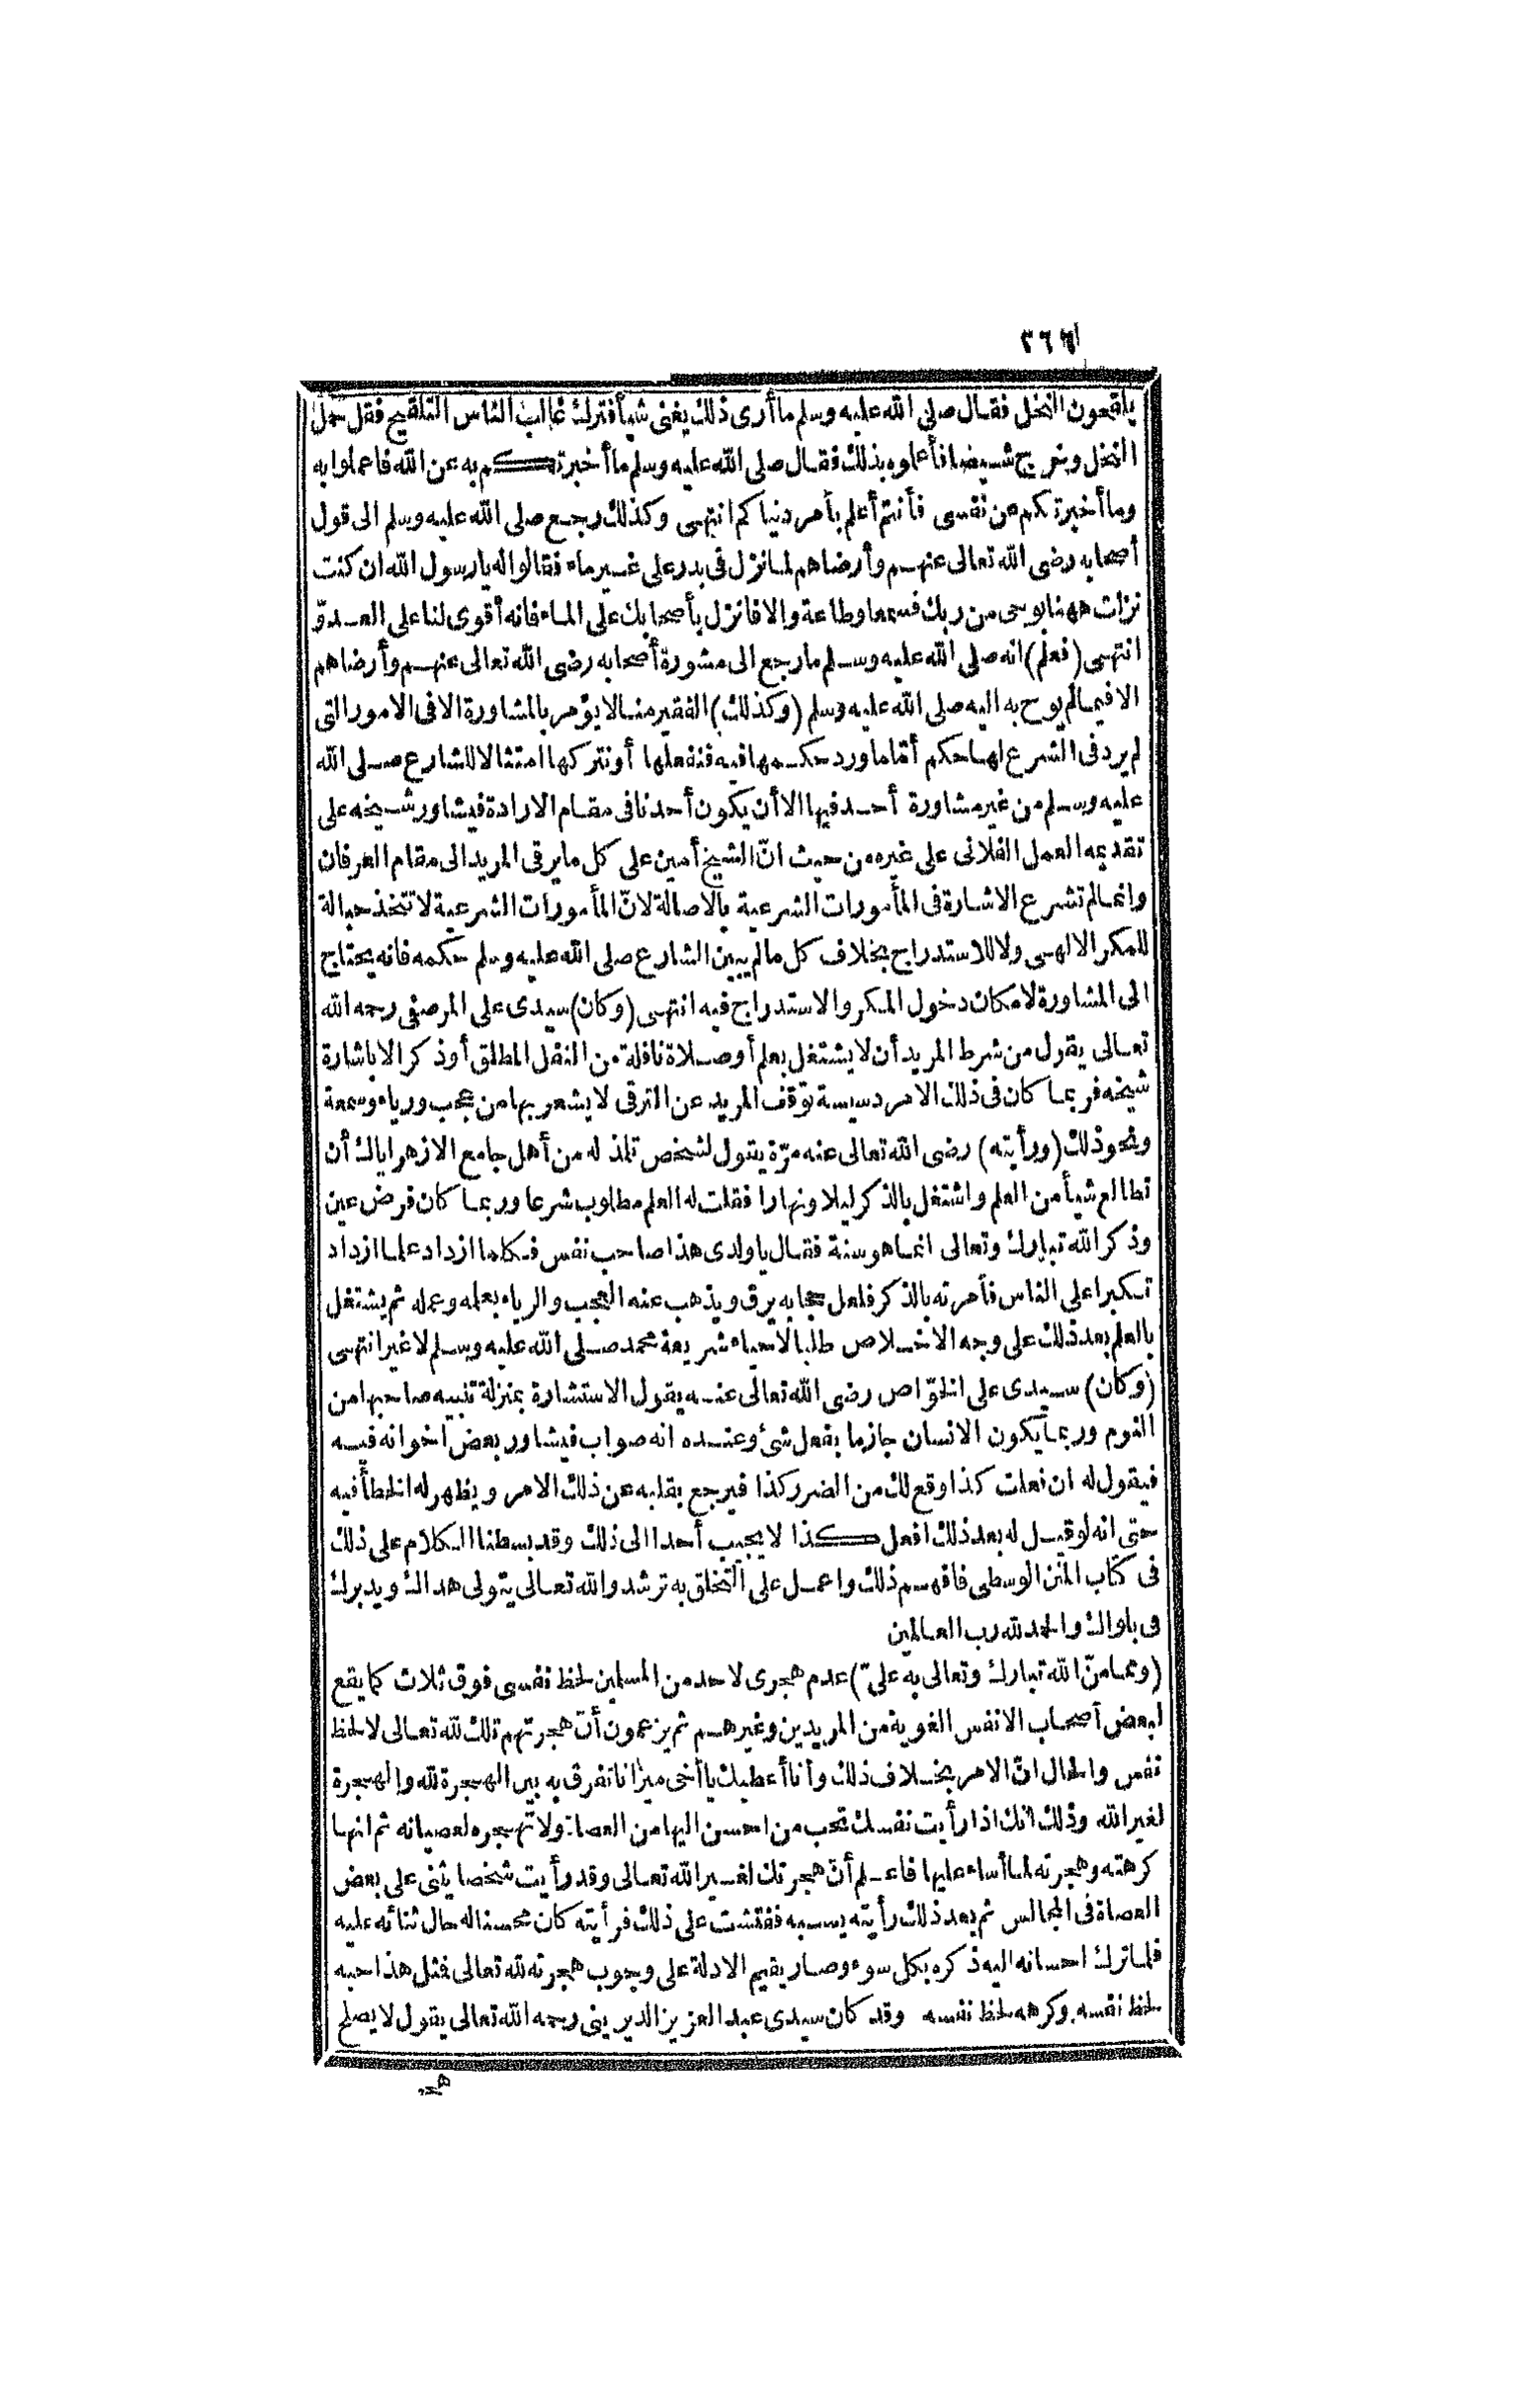 ٢٦٦
يلقحون النخل فقال صلى الله عليه وسلم ما أرى ذلك يغنى شيأ فترك غالب الناس التلقيح فقل حمل
النخل وخرج شيصا فأعلموه بذلك فقال صلى الله عليه وسلم ما أخبرتكم به عن الله فاعملوا به
وما أخبرتكم عن نفسى فأنتم أعلم بأمر دنياكم انتهى وكذلك رجع صلى الله عليه وسلم الى قول
أصحابه رضى الله تعالى عنهم وأرضاهم لما نزل فى بدر على غير ماء فقالوا له يا رسول الله ان كنت
نزلت ههنا بوحى من ربك فسمعا وطاعة والا فانزل بأصحابك على الماء فانه أقوى لنا على العدوّ
انتهى (فعلم) انه صلى الله عليه وسلم ما رجع الى مشورة أصحابه رضى الله تعالى عنهم وأرضاهم
الا فيما لم يوح به اليه صلى الله عليه وسلم (وكذلك) الفقير منا لا يؤمر بالمشاورة الا فى الامور التى
لم يرد فى الشرع لها حكم أمّا ما ورد حكمها فيه فنفعلها أو نتركها امتثالا للشارع صلى الله
عليه وسلم من غير مشاورة أحد فيها الا أن يكون أحدنا فى مقام الارادة فيشاور شيخه على
تقديمه العمل الفلانى على غيره من حيث انّ الشيخ أمين على كل ما يرقى المريد الى مقام العرفان
وانما لم تشرع الاشارة فى المأمورات الشرعية بالاصالة لانّ المأمورات الشرعية لا تتخذ حبالة
للمكر الالهى ولا للاستدراج بخلاف كل ما لم يبين الشارع صلى الله عليه وسلم حكمه فانه يحتاج
الى المشاورة لامكان دخول المكر والاستدراج فيه انتهى (وكان) سيدى على المرصفى رحمه الله
تعالى يقول من شرط المريد أن لا يشتغل بعلم أو صلاة نافلة من النفل المطلق أو ذكر الا باشارة
شيخه فربما كان فى ذلك الامر دسيسة توقف المريد عن الترقى لا يشعر بها من عجب ورياء وسمعة
ونحو ذلك (ورأيته) رضى الله تعالى عنه مرّة يقول لشخص تلمذ له من أهل جامع الازهر اياك أن
تطالع شيأ من العلم واشتغل بالذكر ليلا ونهارا فقلت له العلم مطلوب شرعا وربما كان فرض عين
وذكر الله تبارك وتعالى انما هو سنة فقال يا ولدى هذا صاحب نفس فكلما ازداد علما ازداد
تكبرا على الناس فأمرته بالذكر فلعل حجابه يرق ويذهب عنه العجب والرياء بعلمه وعمله ثم يشتغل
بالعلم بعد ذلك على وجه الاخلاص طلبا لاحياء شريعة محمد صلى الله عليه وسلم لا غير انتهى
(وكان) سيدى على الخوّاص رضى الله تعالى عنه يقول الاستشارة بمنزلة تنبيه صاحبها من
النوم وربما يكون الانسان جازما بفعل شئ وعنده انه صواب فيشاور بعض اخوانه فيه
فيقول له ان فعلت كذا وقع لك من الضرر كذا فيرجع بقلبه عن ذلك الامر ويظهر له الخطأ فيه
حتى انه لو قيل له بعد ذلك افعل كذا لا يجيب أحدا الى ذلك وقد بسطنا الكلام على ذلك
فى كتاب المنن الوسطى فافهم ذلك واعمل على التخلق به ترشد والله تعالى يتولى هداك ويدبرك
فى بلواك والحمد لله رب العالمين
(ومما منّ الله تبارك وتعالى به علىّ) عدم هجرى لاحد من المسلمين لحظ نفسى فوق ثلاث كما يقع
لبعض أصحاب الانفس الغوية من المريدين وغيرهم ثم يزعمون أنّ هجرتهم تلك لله تعالى لا لحظ
نفس والحال انّ الامر بخلاف ذلك وأنا أعطيك يا أخى ميزانا تفرق به بين الهجرة لله والهجرة
لغير الله وذلك انك اذا رأيت نفسك تحب من احسن اليها من العصاة ولا تهجره لعصيانه ثم انها
كرهته وهجرته لما أساء عليها فاعلم أنّ هجرتك لغير الله تعالى وقد رأيت شخصا يثنى على بعض
العصاة فى المجالس ثم بعد ذلك رأيته يسبه ففتشت على ذلك فرأيته كان محسنا له حال ثنائه عليه
فلما ترك احسانه اليه ذكره بكل سوء وصار يقيم الادلة على وجوب هجرته لله تعالى فمثل هذا حبه
لحظ نفسه وكرهه لحظ نفسه وقد كان سيدى عبد العزيز الديرينى رحمه الله تعالى يقول لا يصلح